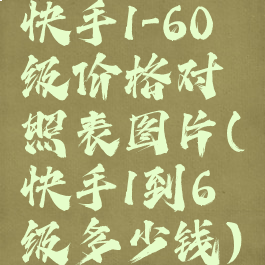 快手1-60
级价格对
照表图片(
快手1到6
级多少钱)